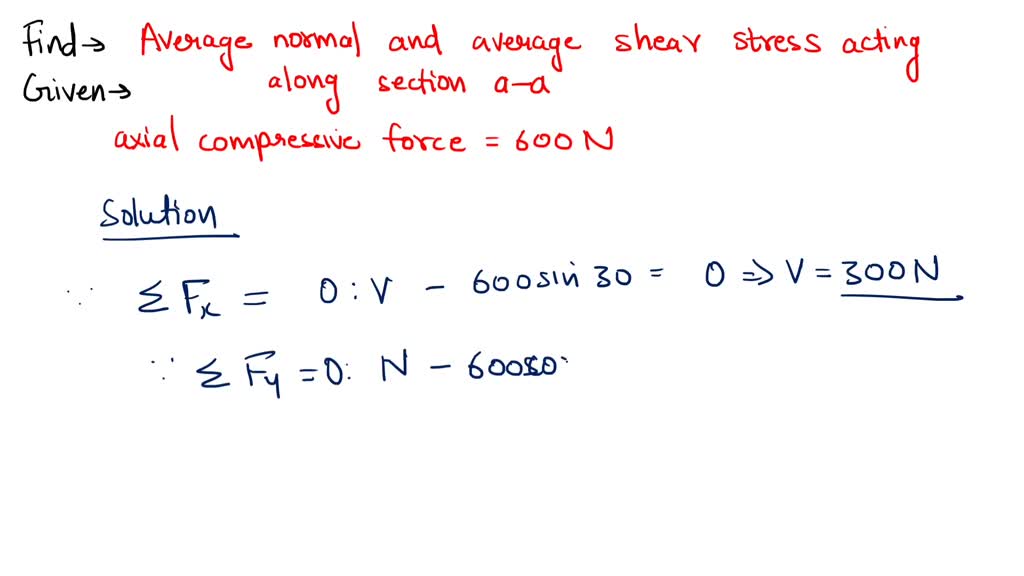 Find → Average normal and average shear stress acting
Given → along section a-a
axial compressive force = 600 N
Solution
∵ ΣFx = 0 : V - 600 sin 30 = 0 ⇒ V = 300 N
∵ ΣFy = 0 : N -